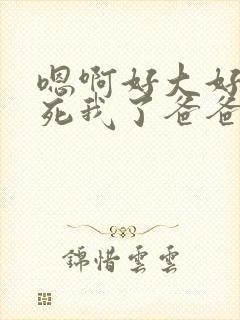 嗯啊好大好
死我了爸爸
錦惜雲雲